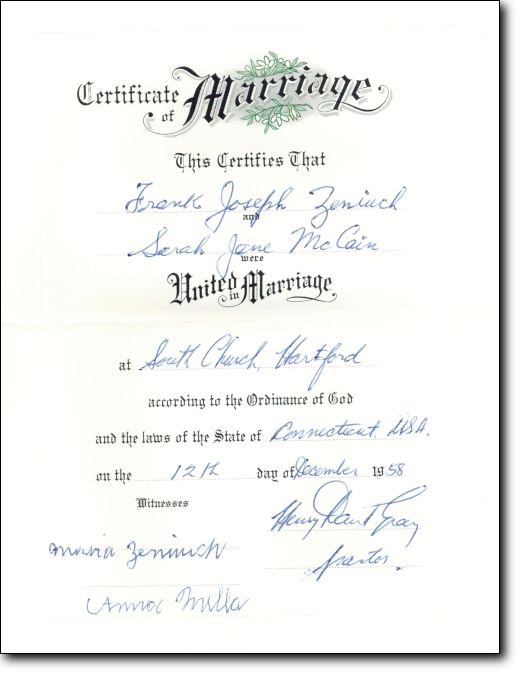 Certificate of Marriage
This Certifies That
Frank Joseph Zeniuch
and
Sarah Jane McCain
were
United in Marriage
at South Church, Hartford
according to the Ordinance of God
and the laws of the State of Connecticut, USA.
on the 12th day of December 1958
Witnesses
Henry David Gray
Maria Zeniuch
Pastor.
Anna